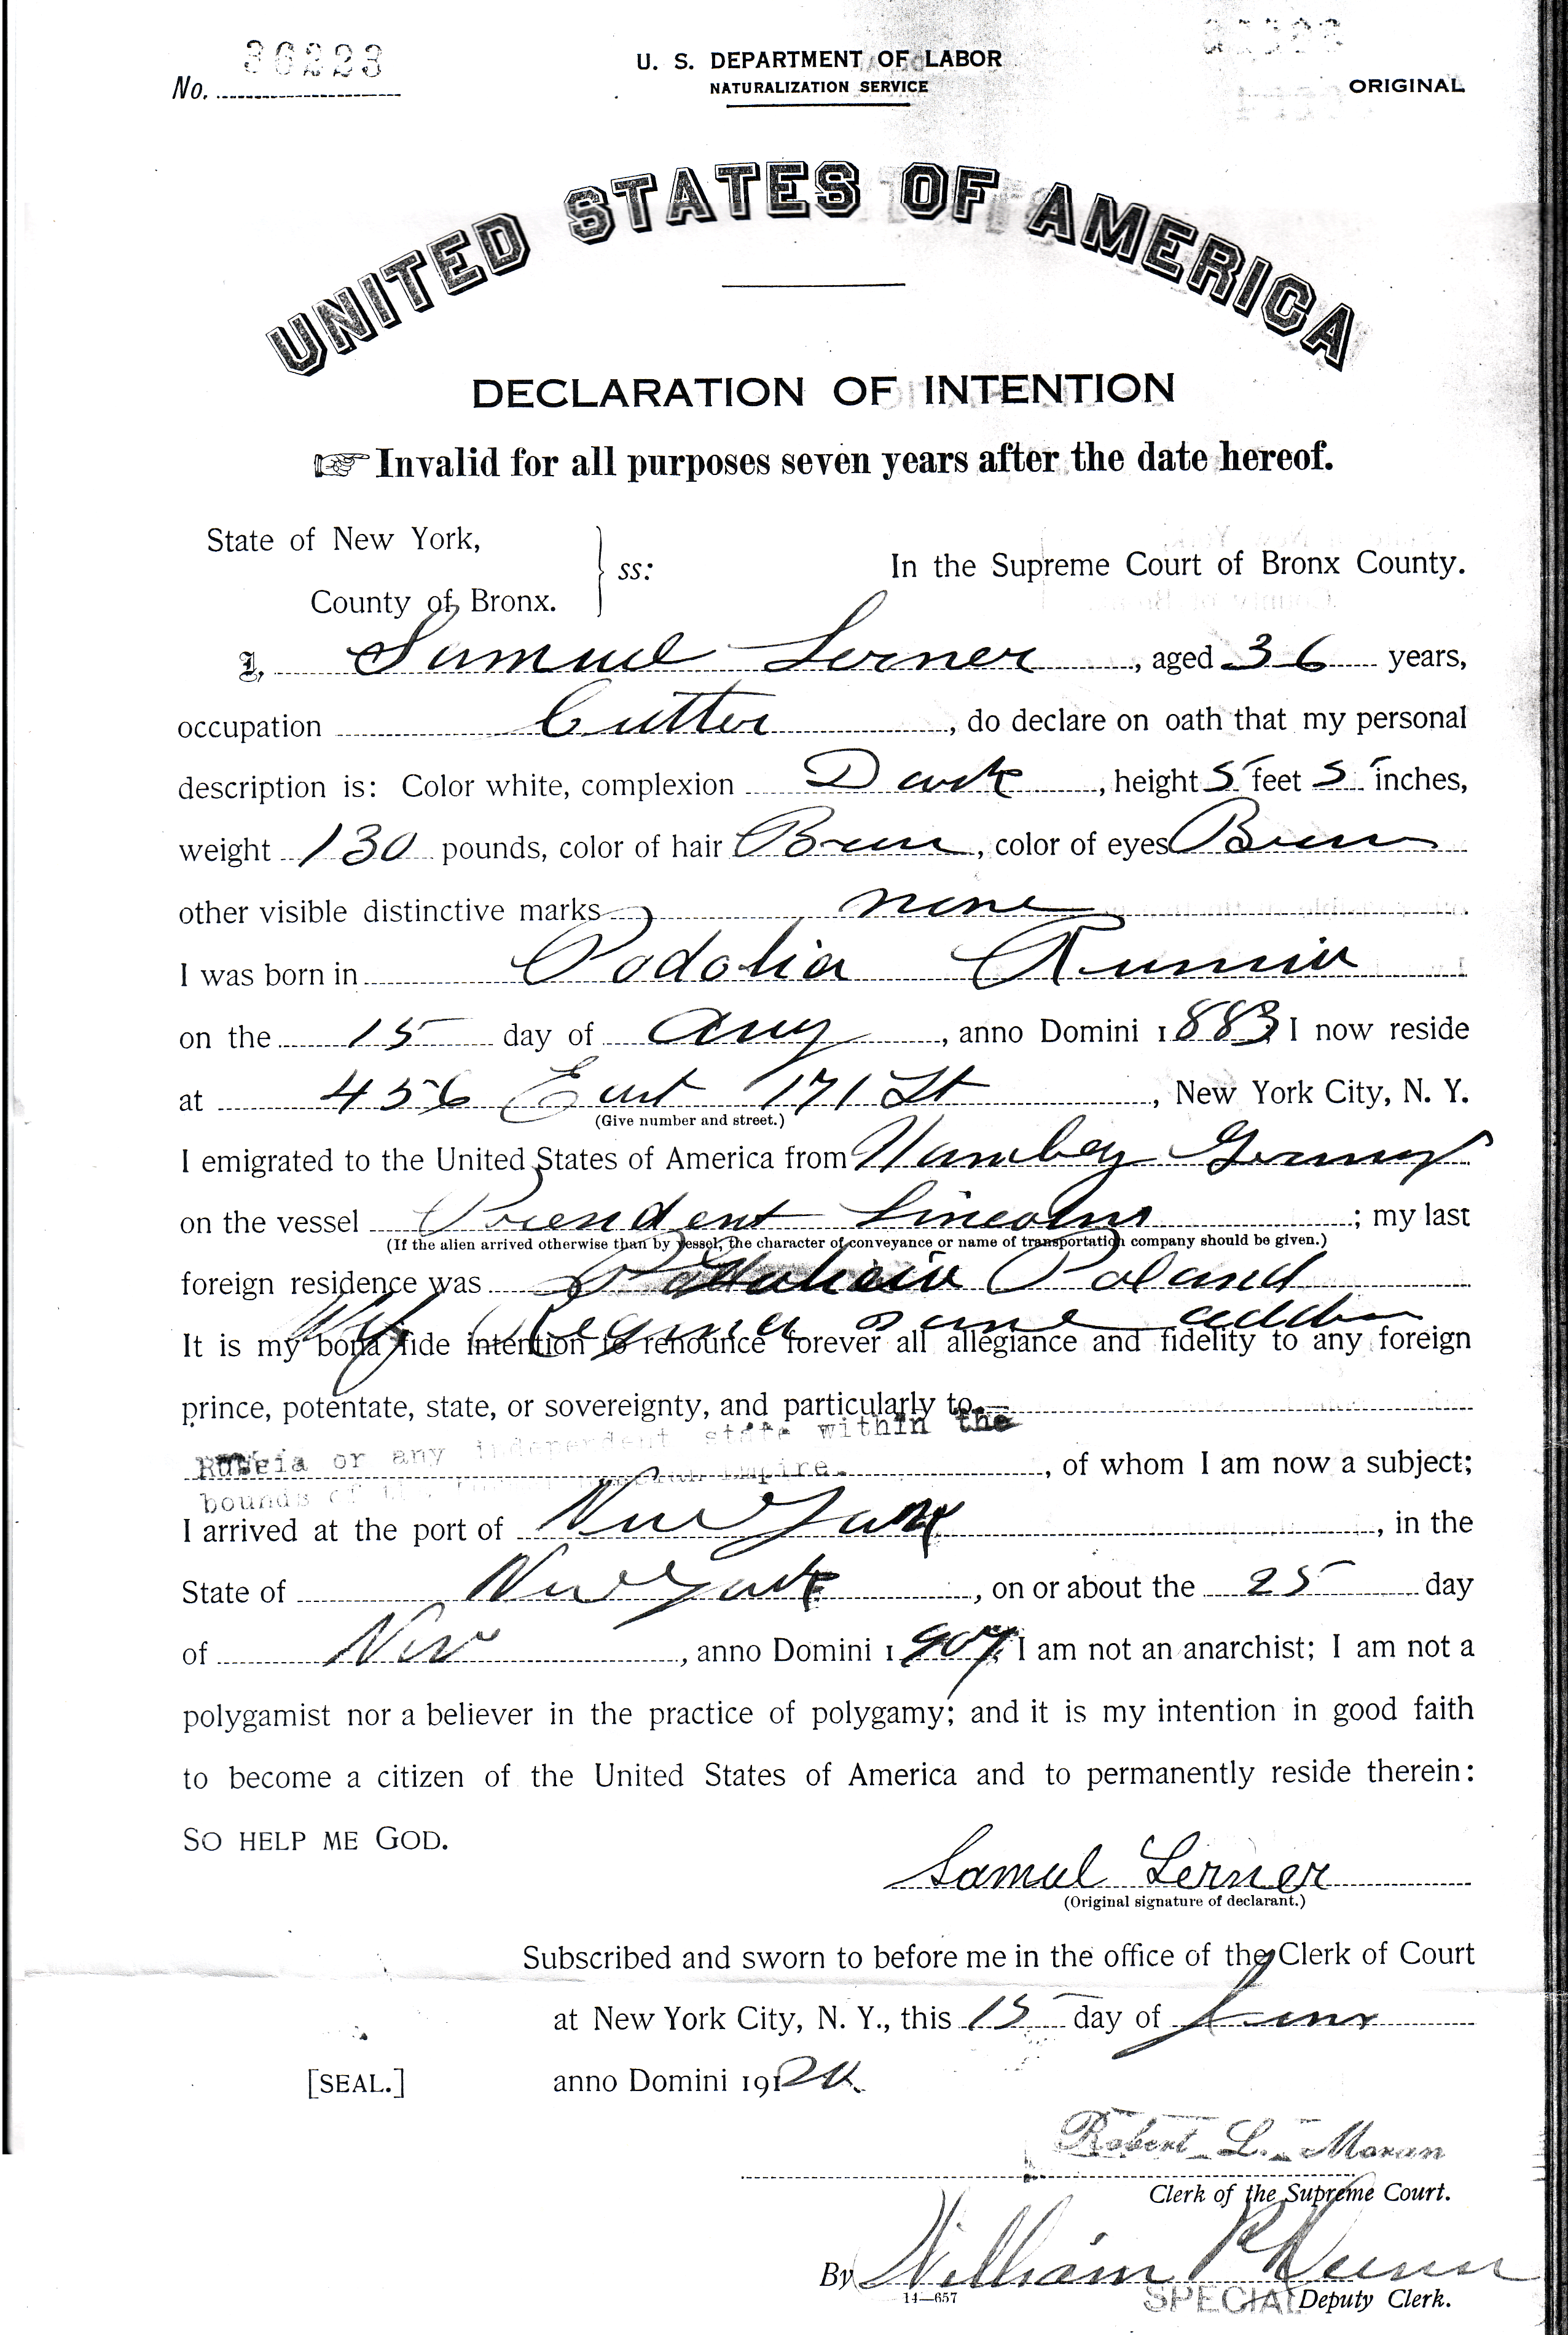 No. 36223
U. S. DEPARTMENT OF LABOR
NATURALIZATION SERVICE
ORIGINAL
UNITED STATES OF AMERICA
DECLARATION OF INTENTION
Invalid for all purposes seven years after the date hereof.
State of New York,
County of Bronx.
ss:
In the Supreme Court of Bronx County.
I, Samuel Lerner, aged 36 years,
occupation Cutter, do declare on oath that my personal
description is: Color white, complexion Dark, height 5 feet 5 inches,
weight 130 pounds, color of hair Brown, color of eyes Brown
other visible distinctive marks none
I was born in Podolia Russia
on the 15 day of Aug, anno Domini 1883; I now reside
at 456 East 171 St, New York City, N. Y.
(Give number and street.)
I emigrated to the United States of America from Hamburg Germany
on the vessel President Lincoln; my last
(If the alien arrived otherwise than by vessel, the character of conveyance or name of transportation company should be given.)
foreign residence was Poland
Wife Regina same address
It is my bona fide intention to renounce forever all allegiance and fidelity to any foreign
prince, potentate, state, or sovereignty, and particularly to
Russia or any independent state within the
, of whom I am now a subject;
bounds of the Empire.
I arrived at the port of New York, in the
State of New York, on or about the 25 day
of Nov, anno Domini 1907; I am not an anarchist; I am not a
polygamist nor a believer in the practice of polygamy; and it is my intention in good faith
to become a citizen of the United States of America and to permanently reside therein:
SO HELP ME GOD.
Samuel Lerner
(Original signature of declarant.)
Subscribed and sworn to before me in the office of the Clerk of Court
at New York City, N. Y., this 15 day of
[SEAL.]
anno Domini 19120.
Robert L. Moran
Clerk of the Supreme Court.
By William P Dunn
14—657
SPECIAL Deputy Clerk.